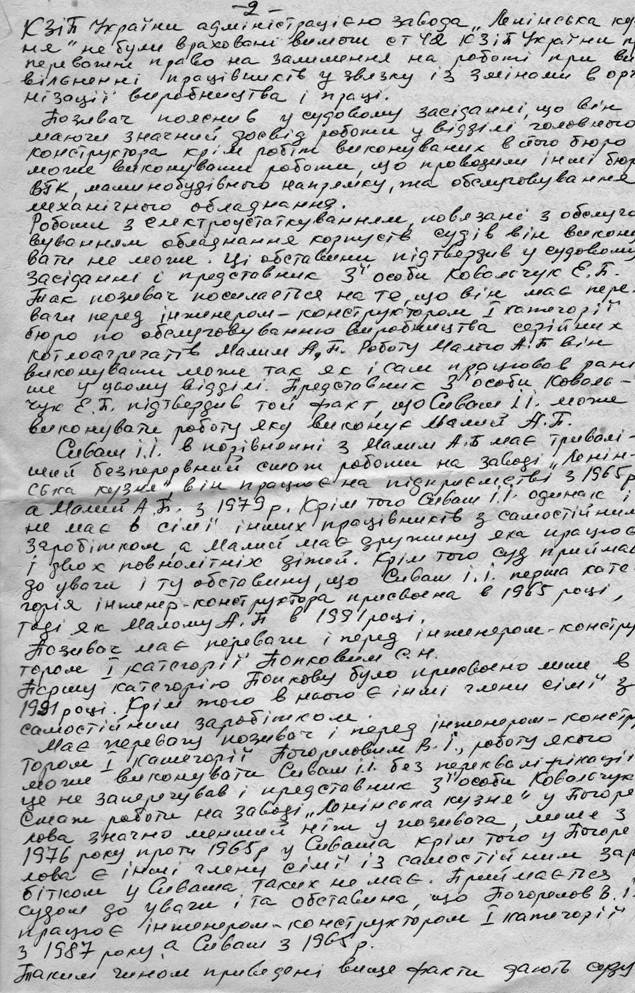 - 2 -
КЗіП України адміністрацією завода „Ленінська куз
ня" не були враховані вимоги ст 42 КЗіП України п
переважне право на залишення на роботі при ви
вільненні працівників у звязку із змінами в орг
нізації виробництва і праці.
Позивач пояснив у судовому засіданні, що він
маючи значний досвід роботи у відділі головного
конструктора крім робіт виконуваних в його бюро
може виконувати роботи, що проводили інші бюр
ВТК, машинобудівного напрямку, та обслуговування
механічного обладнання.
Роботи з електроустаткуванням, повязані з обслуго
вуванням обладнання корпусів судів він викону
вати не може. Ці обставини підтвердив у судовому
засіданні і представник 3ї особи Ковальчук Е.П.
Так позивач посилається на те, що він має пере-
ваги перед інженером-конструктором I категорії
бюро по обслуговуванню виробництва серійних
котлоагрегатів Малим А.П. Роботу Малого А.П він
виконувати може так як і сам працював рані
ше у цьому відділі. Представник 3ї особи Коваль-
чук Е.П. підтвердив той факт, що Сиваш І.І. може
виконувати роботу яку виконує Малий А.П.
Сиваш І.І. в порівненні з Малим А.П має тривалі-
ший безперервний стаж роботи на заводі „Ленін-
ська кузня", він працює на підприємстві з 1965р
а Малий А.П. з 1979р. Крім того Сиваш І.І. одинак і
не має в сімї інших працівників з самостійним
заробітком, а Малий має дружину яка працює
і двох повнолітніх дітей. Крім того суд приймає
до уваги і ту обставину, що Сиваш І.І. перша кате
горія інженер-конструктора присвоєна в 1965 році,
тоді як Малому А.П в 1991 році.
Позивач має переваги і перед інженером-констру
тором I категорії Попковим С.Н.
Першу категорію Попкову було присвоєно лише в
1991 році. Крім того в нього є інші члени сімї з
самостійним заробітком.
Має перевагу позивач і перед інженером-констр
тором I категорії Погореловим В.І., роботу якого
може виконувати Сиваш І.І. без перекваліфікації
це не заперечував і представник 3ї особи Ковальчук
Стаж роботи на заводі „Ленінська кузня" у Погоре
лова значно менший ніж у позивача, лише з
1976 року проти 1965р у Сиваша крім того у Погоре
лова є інші члени сімї із самостійним зар
бітком у Сиваша таких не має. Приймається
судом до уваги і та обставина, що Погорелов В.І.
працює інженером-конструктором I категорії
з 1987 року, а Сиваш з 1965р.
Таким чином приведені вище факти дають суду